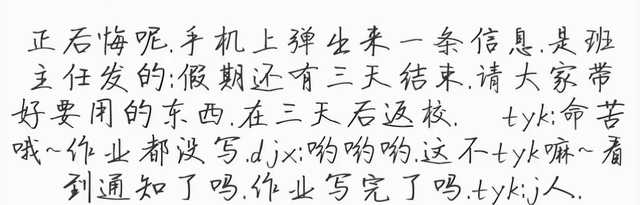 正后悔呢.手机上弹出来一条信息.是班
主任发的:假期还有三天结束.请大家带
好要用的东西.在三天后返校. tyk:命苦
哦~作业都没写.djx:哟哟哟.这不tyk嘛~看
到通知了吗.作业写完了吗.tyk:j人.